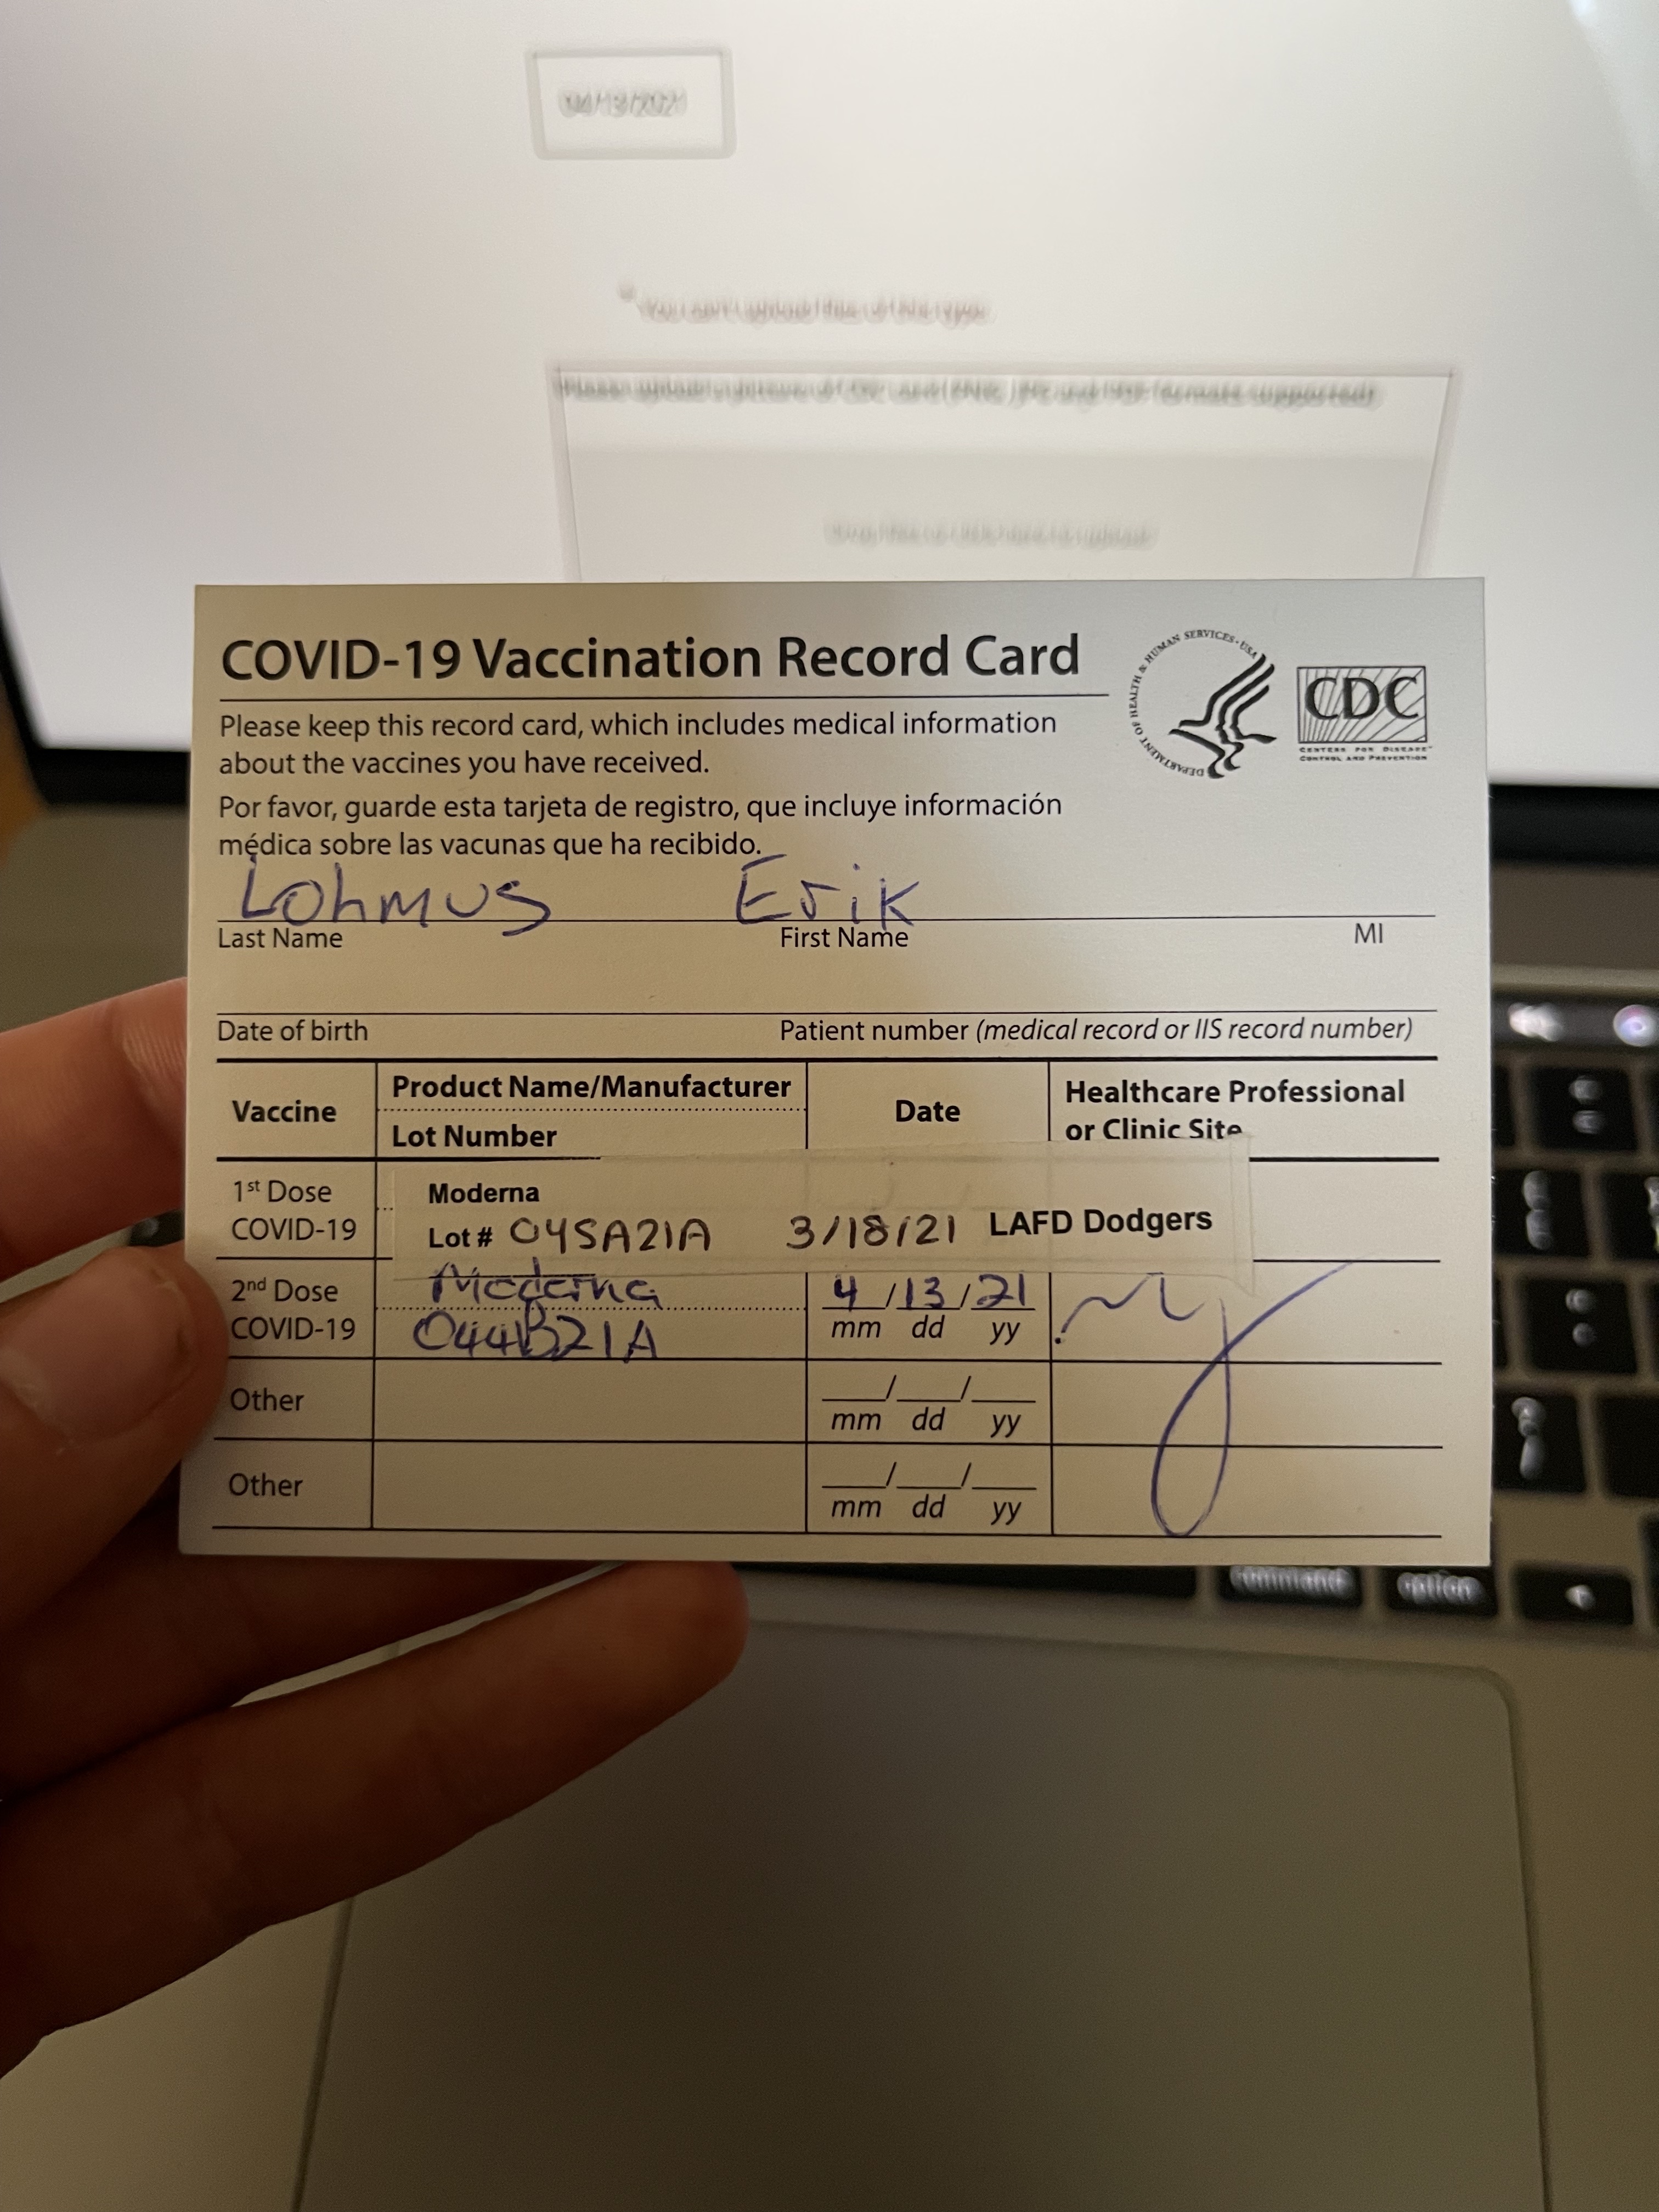 04/13/2021
You can't upload files of this type
Please upload a picture of CDC card (PNG, JPG and PDF formats supported)
COVID-19 Vaccination Record Card
DEPARTMENT OF HEALTH & HUMAN SERVICES · USA
CDC
CENTERS FOR DISEASE™
CONTROL AND PREVENTION
Please keep this record card, which includes medical information
about the vaccines you have received.
Por favor, guarde esta tarjeta de registro, que incluye información
médica sobre las vacunas que ha recibido.
Lohmus Erik
Last Name First Name MI
Date of birth Patient number (medical record or IIS record number)
Vaccine Product Name/Manufacturer Date Healthcare Professional
Lot Number or Clinic Site
1st Dose Moderna
COVID-19 Lot # 045A21A 3/18/21 LAFD Dodgers
2nd Dose Moderna 4/13/21
COVID-19 044B21A mm dd yy
Other / /
mm dd yy
Other / /
mm dd yy
command option